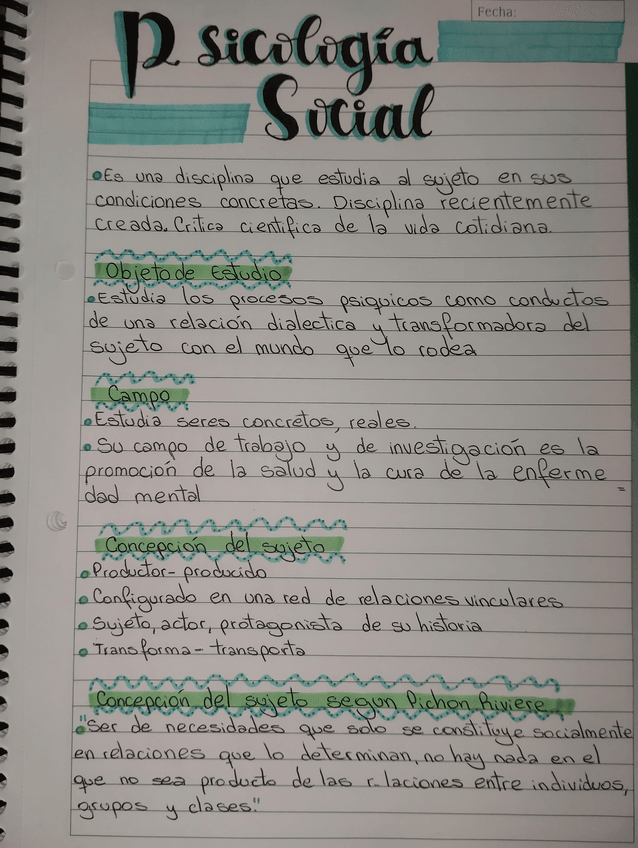 Fecha:
Psicología
Social
•Es una disciplina que estudia al sujeto en sus
condiciones concretas. Disciplina recientemente
creada. Critica cientifica de la vida cotidiana.
Objeto de Estudio
•Estudia los procesos psiquicos como conductos
de una relación dialectica y transformadora del
sujeto con el mundo que lo rodea
Campo
•Estudia seres concretos, reales.
•Su campo de trabajo y de investigación es la
promoción de la salud y la cura de la enferme=
dad mental
Concepción del sujeto
•Productor-producido
•Configurado en una red de relaciones vinculares
•Sujeto, actor, protagonista de su historia
•Transforma-transporta
Concepción del sujeto segun Pichon Riviere.
•"Ser de necesidades que solo se constituye socialmente
en relaciones que lo determinan, no hay nada en el
que no sea producto de las r-laciones entre individuos,
grupos y clases."